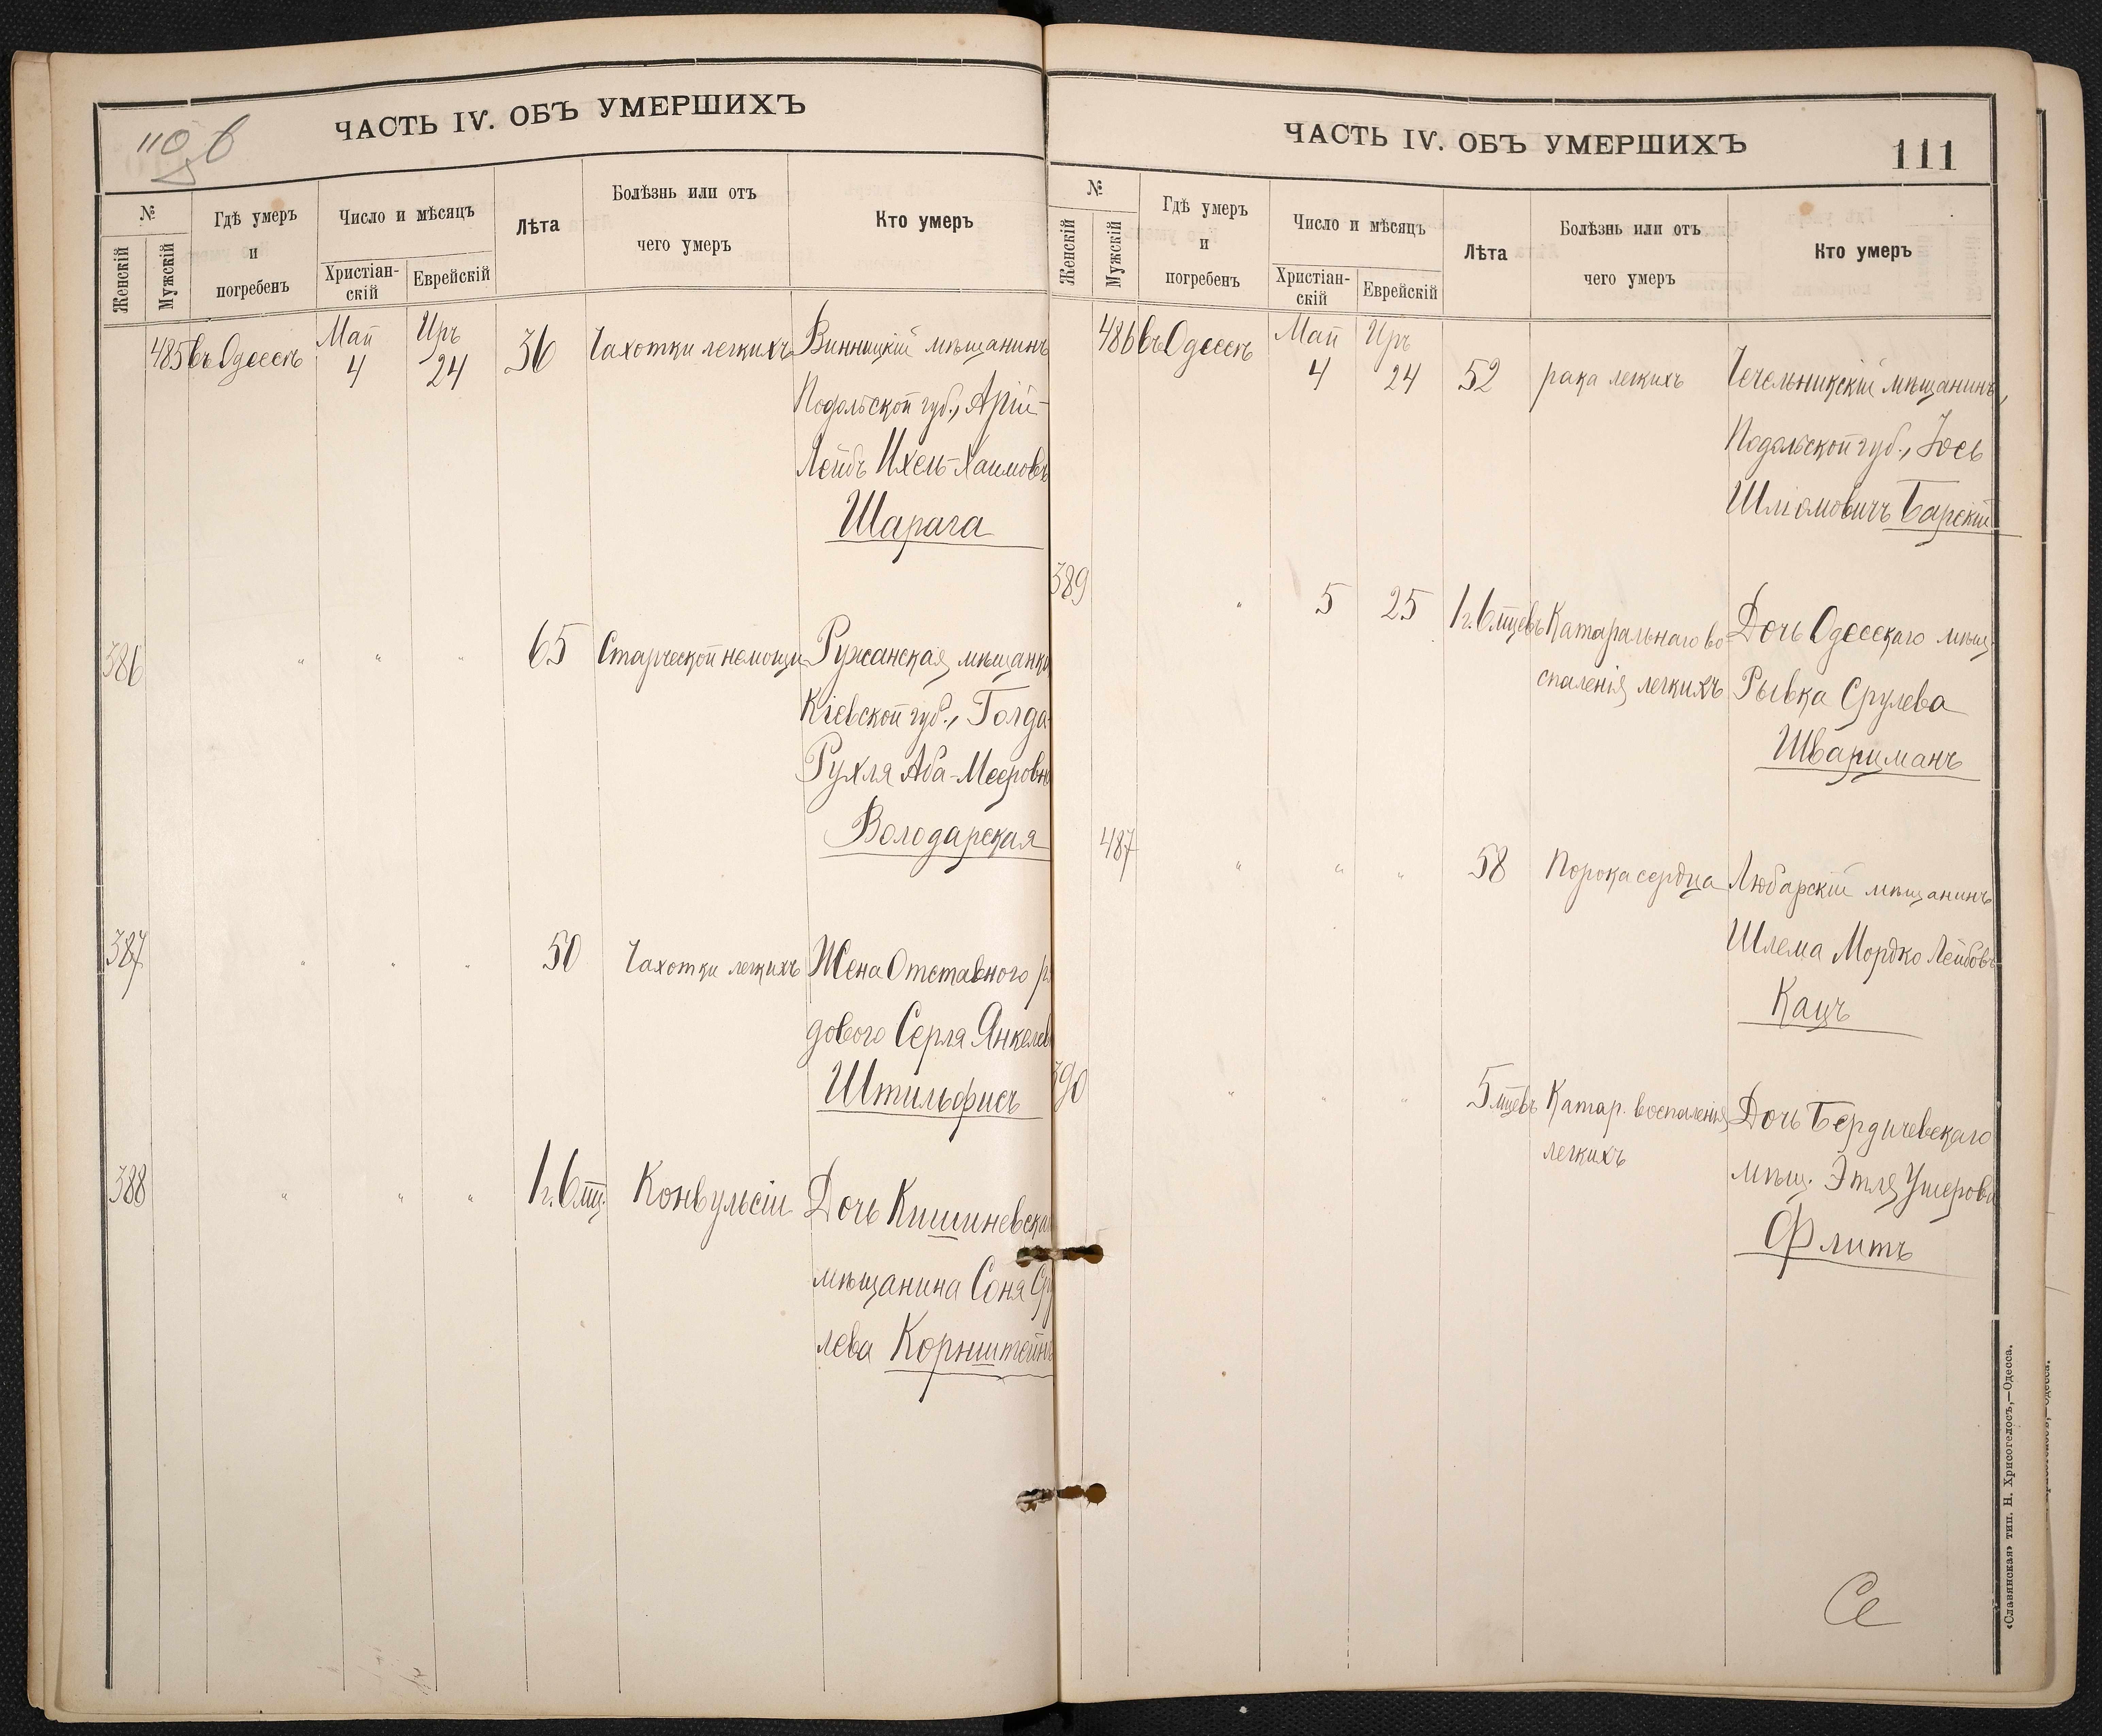 110 в
ЧАСТЬ IV. ОБЪ УМЕРШИХЪ
№
Женскій
Мужскій
Гдѣ умеръ
и
погребенъ
Число и мѣсяцъ
Христіан-
скій
Еврейскій
Лѣта
Болѣзнь или отъ
чего умеръ
Кто умеръ
485 въ Одессѣ Май 4 Иръ 24 36 Чахотки легкихъ Винницкій мѣщанинъ
Подольской губ., Арій-
Лейбъ Ихель-Хаимовъ
Шарага
386 " " " 65 Старческой немощи Ружанская мѣщанка
Кіевской губ., Голда-
Рухля Аба-Мееровна
Володарская
387 " " " 50 Чахотки легкихъ Жена Отставного ря
дового Серля Янкелев
Штильфисъ
388 " " " 1 г. 6 мц. Конвульсіи Дочь Кишиневскаго
мѣщанина Соня Сру
лева Корнштейнъ
ЧАСТЬ IV. ОБЪ УМЕРШИХЪ
111
№
Женскій
Мужскій
Гдѣ умеръ
и
погребенъ
Число и мѣсяцъ
Христіан-
скій
Еврейскій
Лѣта
Болѣзнь или отъ
чего умеръ
Кто умеръ
486 въ Одессѣ Май 4 Иръ 24 52 рака легкихъ Чечельникскій мѣщанинъ,
Подольской губ., Іось
Шліомовичъ Барскій
389 " 5 25 1 г. 6 мцевъ Катаральнаго во- Дочь Одесскаго мѣщ.
спаленія легкихъ Рывка Срулева
Шварцманъ
487 " " " 58 Порока сердца Любарскій мѣщанинъ
Шлема Мордко Лейбовъ
Кацъ
390 " " " 5 мцевъ Катар. воспаленія Дочь Бердичевскаго
легкихъ мѣщ. Этля Ушерова
Флитъ
«Славянская» тип. Н. Хрисогелосъ,—Одесса.